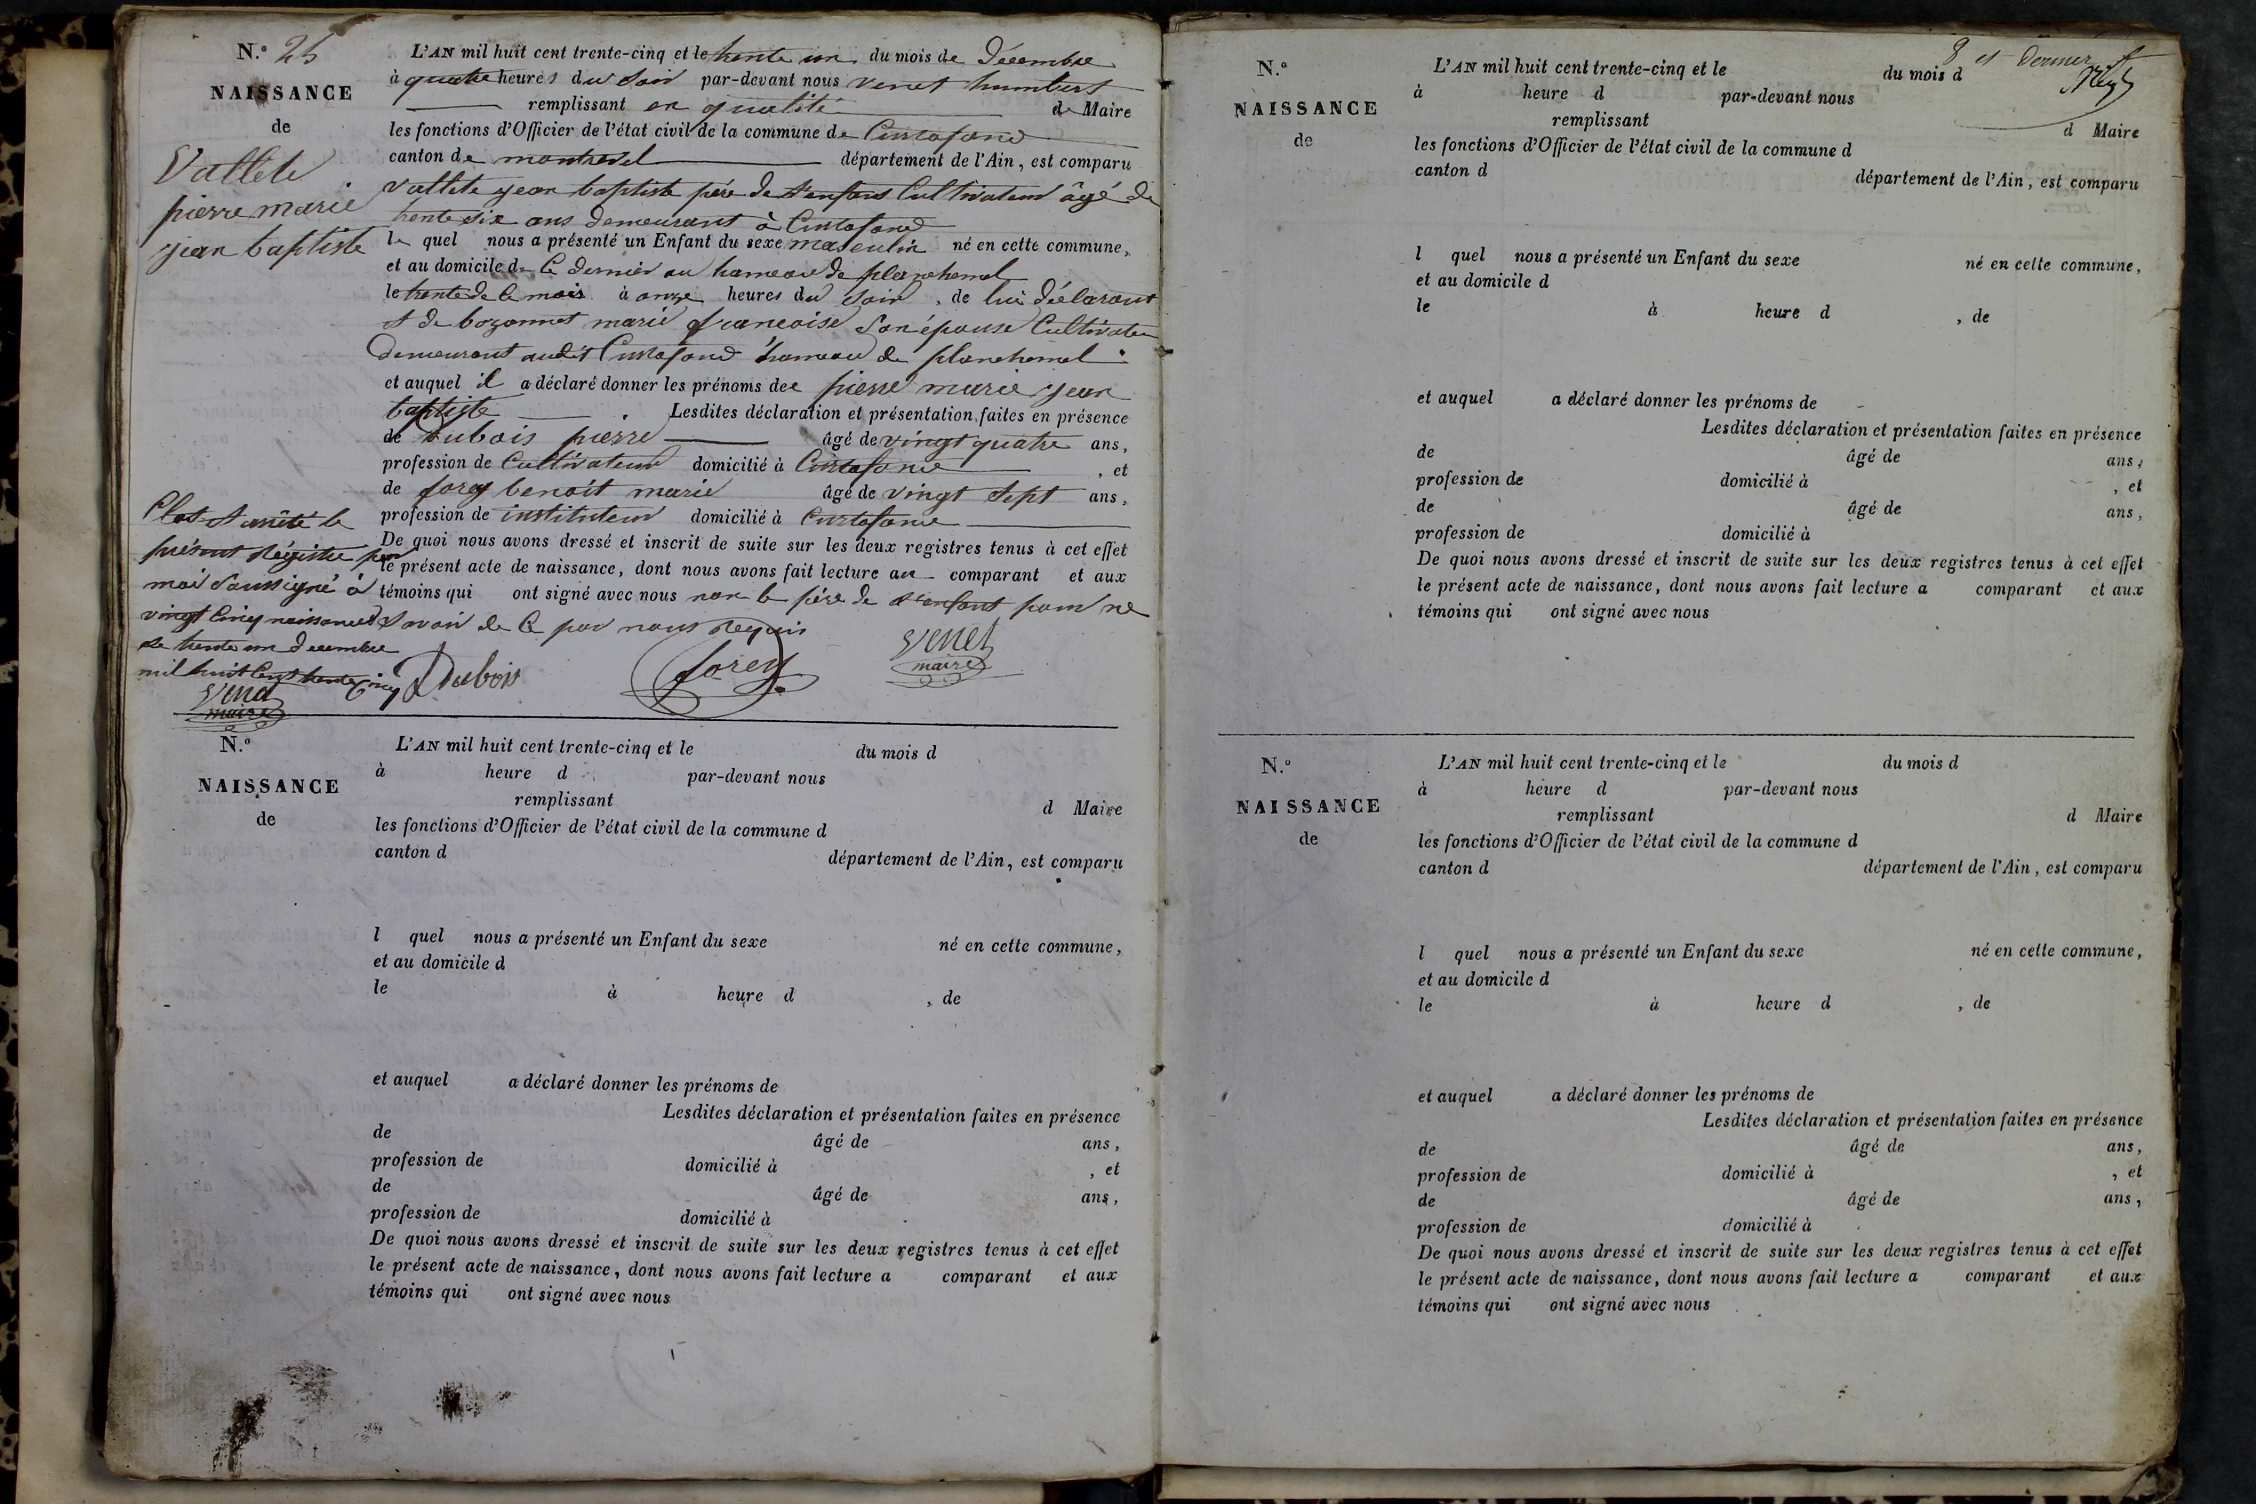 N.o 25
NAISSANCE
de
Vallete
pierre marie
jean baptiste
L'AN mil huit cent trente-cinq et le trente un du mois de Décembre
à quatre heures du Soir par-devant nous venet humbert
remplissant en qualité de Maire
les fonctions d'Officier de l'état civil de la commune de Curtafond
canton de montrevel département de l'Ain, est comparu
Vallete jean baptiste père de l'enfant Cultivateur âgé de
trente six ans demeurant à Curtafond
le quel nous a présenté un Enfant du sexe masculin né en cette commune,
et au domicile de Ce dernier au hameau de planchemel
le trente de Ce mois à onze heures du Soir, de lui déclarant
et de bozonnet marie françoise Son épouse Cultivatr
demeurant audit Curtafond hameau de planchemel
et auquel il a déclaré donner les prénoms de pierre marie jean
baptiste Lesdites déclaration et présentation faites en présence
de Dubois pierre âgé de vingt quatre ans,
profession de Cultivateur domicilié à Curtafond, et
de forey benoit marie âgé de vingt Sept ans,
profession de instituteur domicilié à Curtafond
De quoi nous avons dressé et inscrit de suite sur les deux registres tenus à cet effet
le présent acte de naissance, dont nous avons fait lecture au comparant et aux
témoins qui ont signé avec nous non le père de l'enfant pour ne
Savoir de Ce par nous requis
Dubois forey Venet
maire
Clos et arrêté le
présent Régistre par
moi Soussigné à
vingt Cinq naissances
le trente un decembre
mil huit Cent trente Cinq
Venet
maire
N.o
NAISSANCE
de
L'AN mil huit cent trente-cinq et le du mois d
à heure d par-devant nous
remplissant d Maire
les fonctions d'Officier de l'état civil de la commune d
canton d département de l'Ain, est comparu
l quel nous a présenté un Enfant du sexe né en cette commune,
et au domicile d
le à heure d , de
et auquel a déclaré donner les prénoms de
Lesdites déclaration et présentation faites en présence
de âgé de ans,
profession de domicilié à , et
de âgé de ans,
profession de domicilié à
De quoi nous avons dressé et inscrit de suite sur les deux registres tenus à cet effet
le présent acte de naissance, dont nous avons fait lecture a comparant et aux
témoins qui ont signé avec nous
8 et dernier
N.o
NAISSANCE
de
L'AN mil huit cent trente-cinq et le du mois d
à heure d par-devant nous
remplissant d Maire
les fonctions d'Officier de l'état civil de la commune d
canton d département de l'Ain, est comparu
l quel nous a présenté un Enfant du sexe né en cette commune,
et au domicile d
le à heure d , de
et auquel a déclaré donner les prénoms de
Lesdites déclaration et présentation faites en présence
de âgé de ans,
profession de domicilié à , et
de âgé de ans,
profession de domicilié à
De quoi nous avons dressé et inscrit de suite sur les deux registres tenus à cet effet
le présent acte de naissance, dont nous avons fait lecture a comparant et aux
témoins qui ont signé avec nous
N.o
NAISSANCE
de
L'AN mil huit cent trente-cinq et le du mois d
à heure d par-devant nous
remplissant d Maire
les fonctions d'Officier de l'état civil de la commune d
canton d département de l'Ain, est comparu
l quel nous a présenté un Enfant du sexe né en cette commune,
et au domicile d
le à heure d , de
et auquel a déclaré donner les prénoms de
Lesdites déclaration et présentation faites en présence
de âgé de ans,
profession de domicilié à , et
de âgé de ans,
profession de domicilié à
De quoi nous avons dressé et inscrit de suite sur les deux registres tenus à cet effet
le présent acte de naissance, dont nous avons fait lecture a comparant et aux
témoins qui ont signé avec nous